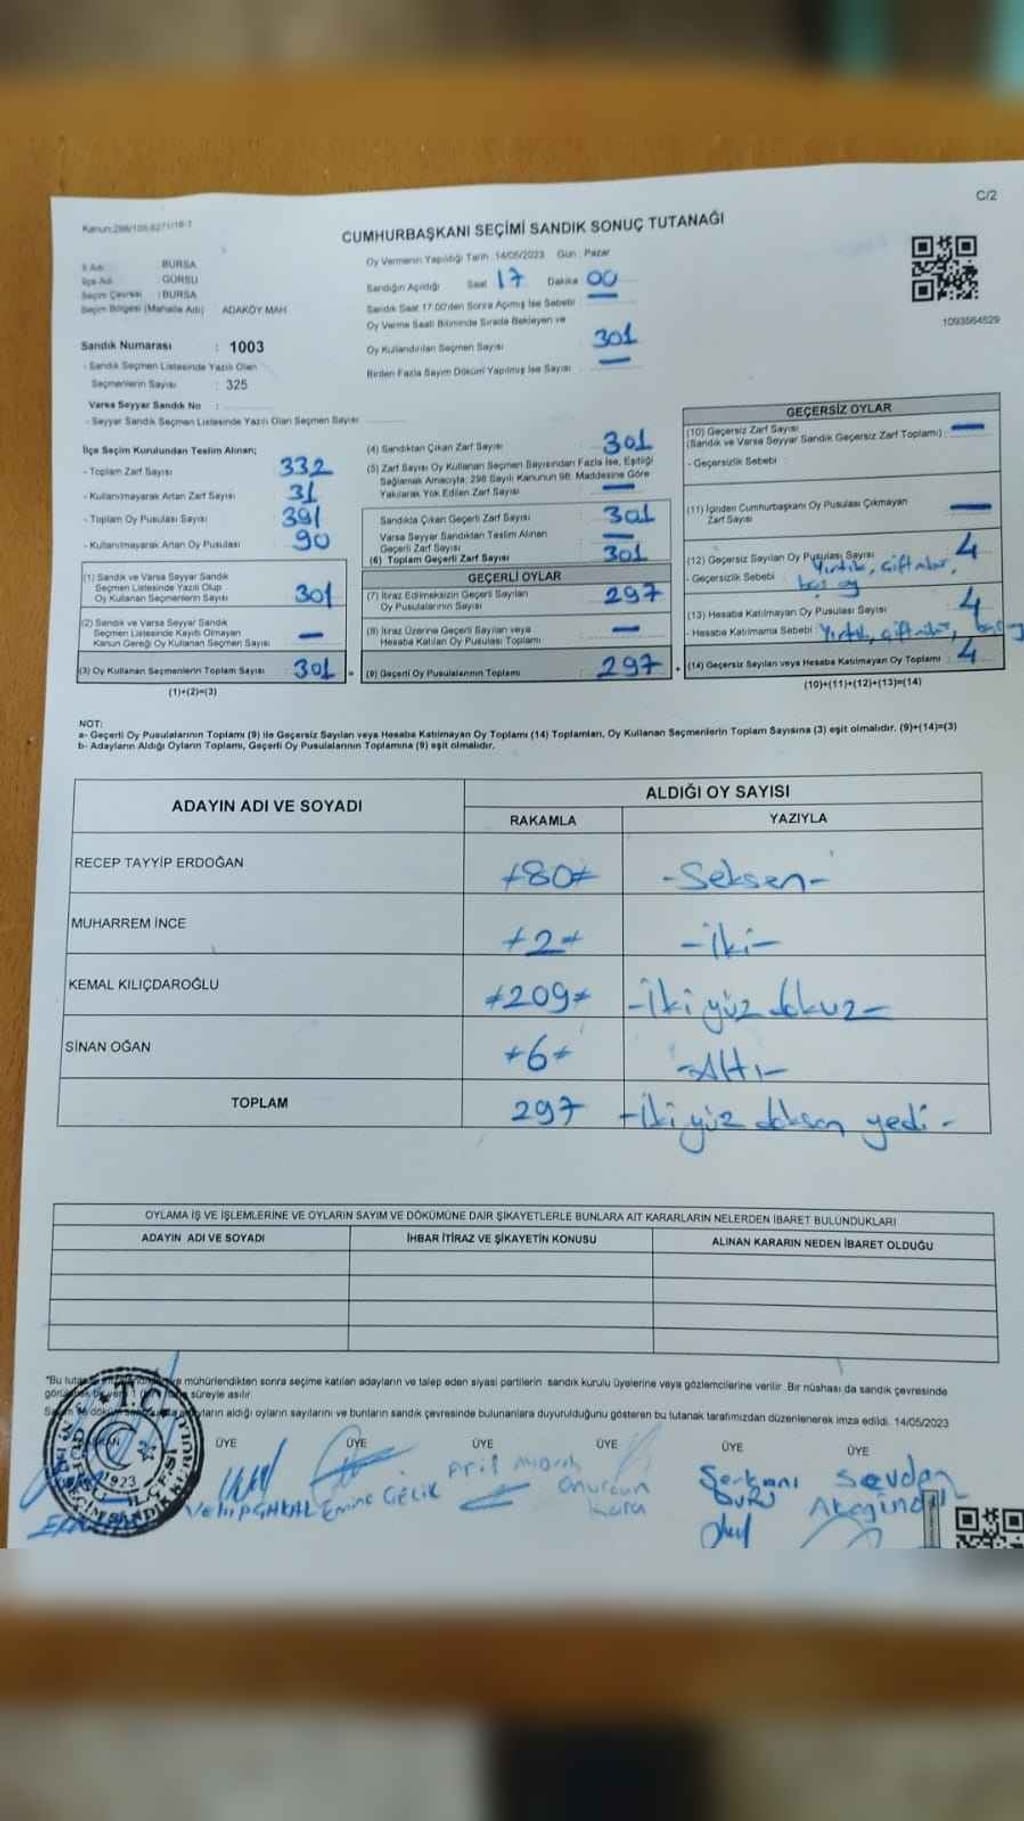 C/2
CUMHURBAŞKANI SEÇİMİ SANDIK SONUÇ TUTANAĞI
İli Adı : BURSA
İlçe Adı : GÜRSU
Seçim Çevresi : BURSA
Seçim Bölgesi (Mahalle Adı) ADAKÖY MAH
Sandık Numarası : 1003
- Sandık Seçmen Listesinde Yazılı Olan
Seçmenlerin Sayısı : 325
Varsa Seyyar Sandık No :
- Seyyar Sandık Seçmen Listesinde Yazılı Olan Seçmen Sayısı
Oy Vermenin Yapıldığı Tarih : 14/05/2023 Gün : Pazar
Sandığın Açıldığı Saat 17 Dakika 00
Sandık Saat 17:00'den Sonra Açılmış İse Sebebi —
Oy Verme Saati Bitiminde Sırada Bekleyen ve
Oy Kullandırılan Seçmen Sayısı 301
Birden Fazla Sayım Döküm Yapılmış İse Sayısı —
1093564529
İlçe Seçim Kurulundan Teslim Alınan;
- Toplam Zarf Sayısı 332
- Kullanılmayarak Artan Zarf Sayısı 31
- Toplam Oy Pusulası Sayısı 391
- Kullanılmayarak Artan Oy Pusulası 90
(1) Sandık ve Varsa Seyyar Sandık
Seçmen Listesinde Yazılı Olup
Oy Kullanan Seçmenlerin Sayısı 301
(2) Sandık ve Varsa Seyyar Sandık
Seçmen Listesinde Kayıtlı Olmayan
Kanun Gereği Oy Kullanan Seçmen Sayısı —
(3) Oy Kullanan Seçmenlerin Toplam Sayısı 301 =
(1)+(2)=(3)
(4) Sandıktan Çıkan Zarf Sayısı 301
(5) Zarf Sayısı Oy Kullanan Seçmen Sayısından Fazla İse, Eşitliği
Sağlamak Amacıyla, 298 Sayılı Kanunun 98. Maddesine Göre
Yakılarak Yok Edilen Zarf Sayısı —
Sandıkta Çıkan Geçerli Zarf Sayısı 301
Varsa Seyyar Sandıktan Teslim Alınan
Geçerli Zarf Sayısı —
(6) Toplam Geçerli Zarf Sayısı 301
GEÇERLİ OYLAR
(7) İtiraz Edilmeksizin Geçerli Sayılan
Oy Pusulalarının Sayısı 297
(8) İtiraz Üzerine Geçerli Sayılan veya
Hesaba Katılan Oy Pusulası Toplamı —
(9) Geçerli Oy Pusulalarının Toplamı 297 +
GEÇERSİZ OYLAR
(10) Geçersiz Zarf Sayısı
(Sandık ve Varsa Seyyar Sandık Geçersiz Zarf Toplamı) : —
- Geçersizlik Sebebi :
(11) İçinden Cumhurbaşkanı Oy Pusulası Çıkmayan
Zarf Sayısı —
(12) Geçersiz Sayılan Oy Pusulası Sayısı 4
- Geçersizlik Sebebi Yırtık, çiftmühür,
boş oy
(13) Hesaba Katılmayan Oy Pusulası Sayısı 4
- Hesaba Katılmama Sebebi Yırtık, çiftmühür,
(14) Geçersiz Sayılan veya Hesaba Katılmayan Oy Toplamı 4
(10)+(11)+(12)+(13)=(14)
NOT:
a- Geçerli Oy Pusulalarının Toplamı (9) ile Geçersiz Sayılan veya Hesaba Katılmayan Oy Toplamı (14) Toplamları, Oy Kullanan Seçmenlerin Toplam Sayısına (3) eşit olmalıdır. (9)+(14)=(3)
b- Adayların Aldığı Oyların Toplamı, Geçerli Oy Pusulalarının Toplamına (9) eşit olmalıdır.
ADAYIN ADI VE SOYADI ALDIĞI OY SAYISI
RAKAMLA YAZIYLA
RECEP TAYYİP ERDOĞAN ≠80≠ -Seksen-
MUHARREM İNCE ≠2≠ -İki-
KEMAL KILIÇDAROĞLU ≠209≠ -İki yüz dokuz-
SİNAN OĞAN ≠6≠ -Altı-
TOPLAM 297 -İki yüz doksan yedi-
OYLAMA İŞ VE İŞLEMLERİNE VE OYLARIN SAYIM VE DÖKÜMÜNE DAİR ŞİKAYETLERLE BUNLARA AİT KARARLARIN NELERDEN İBARET BULUNDUKLARI
ADAYIN ADI VE SOYADI İHBAR İTİRAZ VE ŞİKAYETİN KONUSU ALINAN KARARIN NEDEN İBARET OLDUĞU
"Bu mühürlendikten sonra seçime katılan adayların ve talep eden siyasi partilerin sandık kurulu üyelerine veya gözlemcilerine verilir. Bir nüshası da sandık çevresinde
süreyle asılır.
aldığı oyların sayılarını ve bunların sandık çevresinde bulunanlara duyurulduğunu gösteren bu tutanak tarafımızdan düzenlenerek imza edildi. 14/05/2023
ÜYE ÜYE ÜYE ÜYE ÜYE ÜYE
T.C.
1923
Emine Çelik
Onurcan
Kara
Serkan
Sevdan